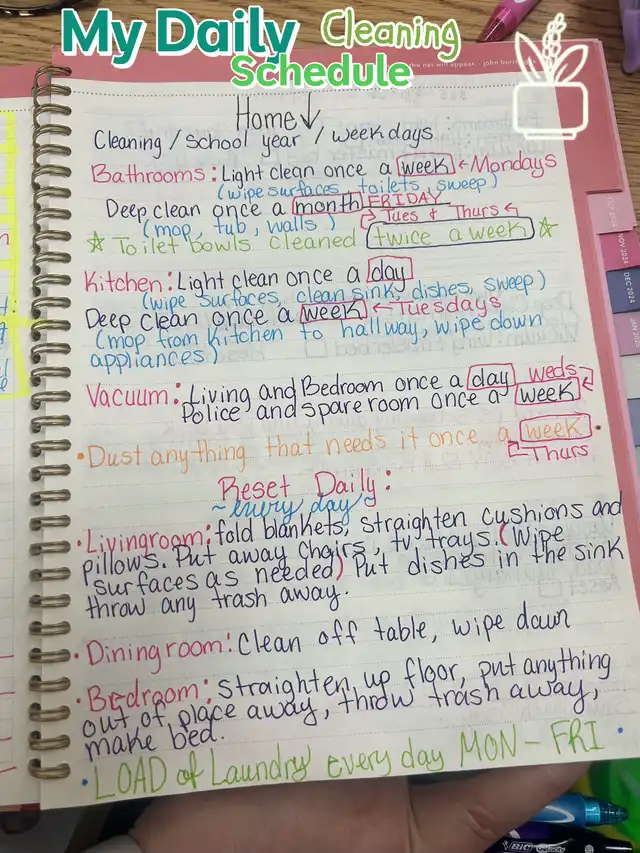 My Daily Cleaning
Schedule
the nas will appear. - john burr
Home ↓
Cleaning / School year / weekdays
Bathrooms: Light clean once a week ← Mondays
(wipe surfaces, toilets, sweep)
Deep clean once a month FRIDAY
(mop, tub, walls) Tues & Thurs
☆ Toilet bowls cleaned twice a week ☆
Kitchen: Light clean once a day
(wipe surfaces, clean sink, dishes, sweep)
Deep clean once a week ← Tuesdays
(mop from kitchen to hallway, wipe down
appliances)
Vacuum: Living and Bedroom once a day weds
Police and spare room once a week
• Dust anything that needs it once a week •
Thurs
Reset Daily:
~ every day ~
• Livingroom: fold blankets, straighten cushions and
pillows. Put away chairs, tv trays. (Wipe
surfaces as needed) Put dishes in the sink
throw any trash away.
• Diningroom: Clean off table, wipe down
• Bedroom: Straighten up floor, put anything
out of place away, throw trash away,
make bed.
• LOAD of Laundry every day MON - FRI •
OCT 2024
NOV 2024
DEC 2024
JAN 2025
BIC